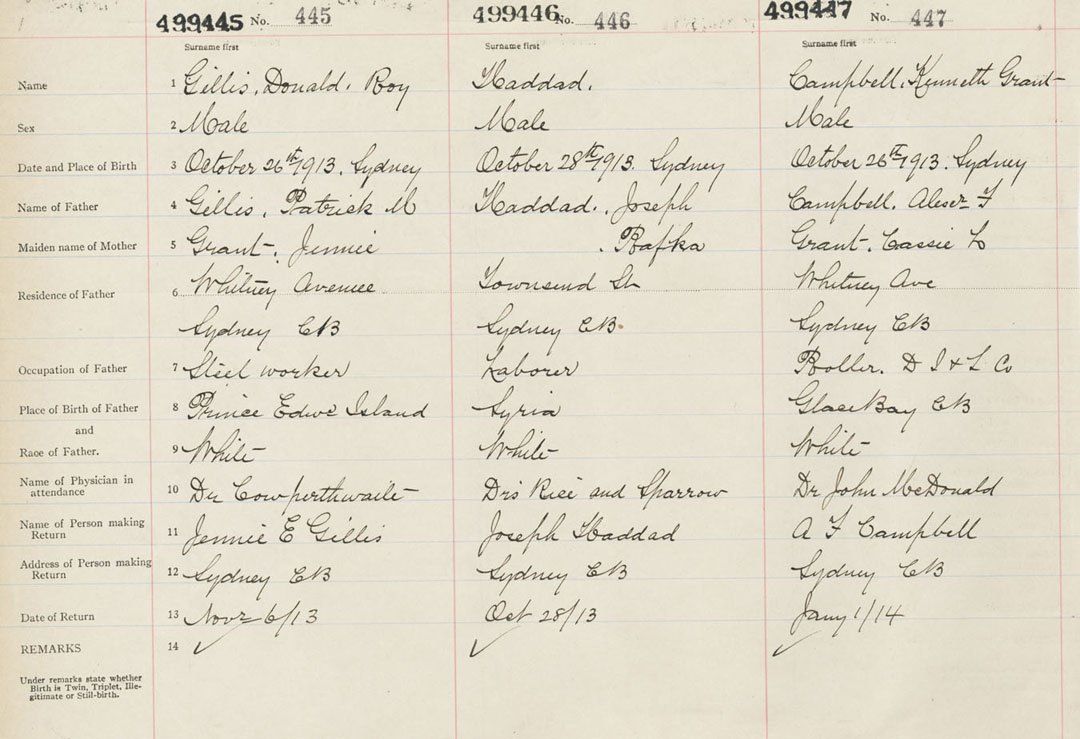 499445 No. 445 499446 No. 446 499447 No. 447
Surname first Surname first Surname first
Name 1 Gillis, Donald, Roy Haddad, Campbell, Kenneth Grant
Sex 2 Male Male Male
Date and Place of Birth 3 October 26th 1913, Sydney October 28th 1913. Sydney October 26th 1913. Sydney
Name of Father 4 Gillis, Patrick M Haddad, Joseph Campbell, F
Maiden name of Mother 5 Grant, Jennie , Rafka Grant, Cassie
Residence of Father 6 Whitney Avenue Townsend St Whitney Ave
Sydney CB Sydney CB. Sydney CB
Occupation of Father 7 Steel worker Laborer Roller. D I & S Co
Place of Birth of Father 8 Prince Edwd Island Syria Glace Bay CB
and
Race of Father. 9 White White White
Name of Physician in
attendance 10 Dr Cowperthwaite Drs Rice and Sparrow Dr John McDonald
Name of Person making
Return 11 Jennie E Gillis Joseph Haddad A F Campbell
Address of Person making
Return 12 Sydney CB Sydney CB Sydney CB
Date of Return 13 Novr 6/13 Oct 28/13 Jany 1/14
REMARKS 14
Under remarks state whether
Birth is Twin, Triplet, Ille-
gitimate or Still-birth.